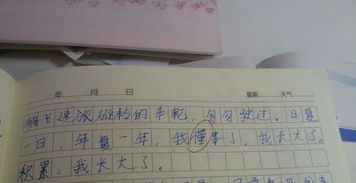 年 月 日 星期 天气
飞速旋转的车轮，匆匆驶过。日复
一日，年复一年，我懂事了，我长大了。
积累：我长大了。